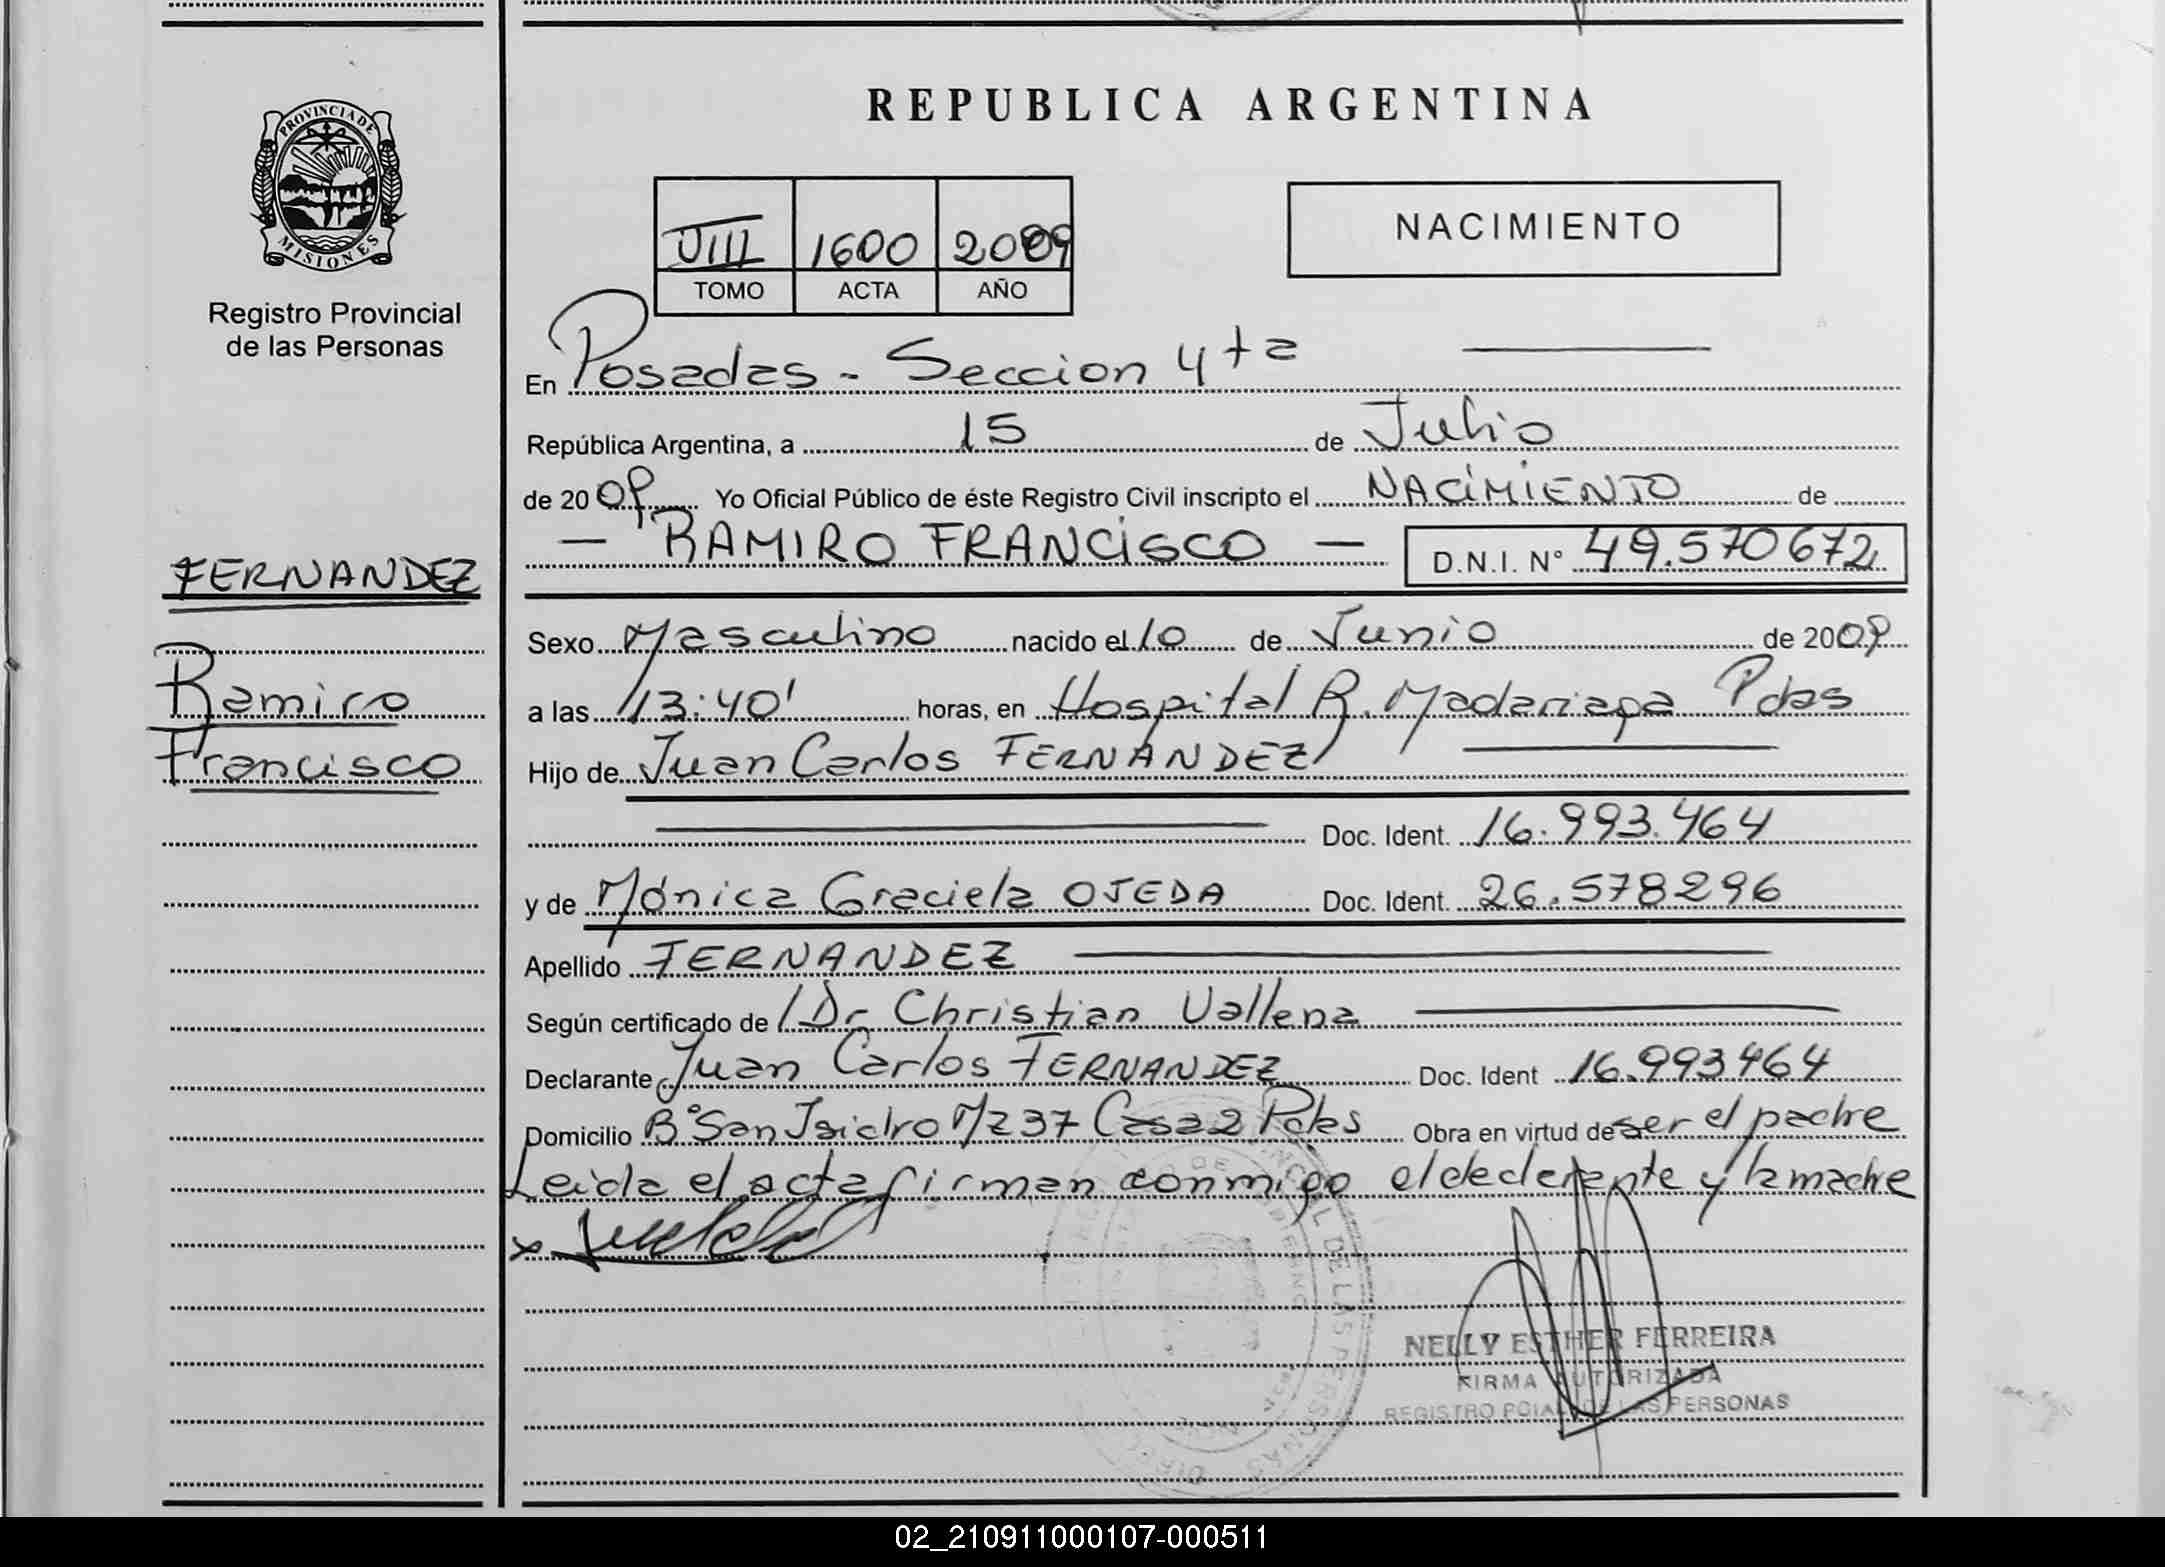 REPUBLICA ARGENTINA
PROVINCIA DE MISIONES
Registro Provincial
de las Personas
VIII 1600 2009
TOMO ACTA AÑO
NACIMIENTO
En Posadas - Seccion 4ta
República Argentina, a 15 de Julio
de 2009 Yo Oficial Público de éste Registro Civil inscripto el NACIMIENTO de
- RAMIRO FRANCISCO - D.N.I. N° 49.570672
FERNANDEZ
Ramiro
Francisco
Sexo Masculino nacido el 10 de Junio de 2009
a las 13:40' horas, en Hospital R. Madariaga Pdas
Hijo de Juan Carlos FERNANDEZ
Doc. Ident. 16.993.464
y de Mónica Graciela OJEDA Doc. Ident. 26.578296
Apellido FERNANDEZ
Según certificado de Dr Christian
Declarante Juan Carlos FERNANDEZ Doc. Ident 16.993464
Domicilio B° San Isidro Mz 37 Casa 2 Pdas Obra en virtud de ser el padre
Leida el acta firman conmigo el declarante y la madre
NELLY ESTHER FERREIRA
FIRMA AUTORIZADA
REGISTRO PCIAL DE LAS PERSONAS
02_210911000107-000511